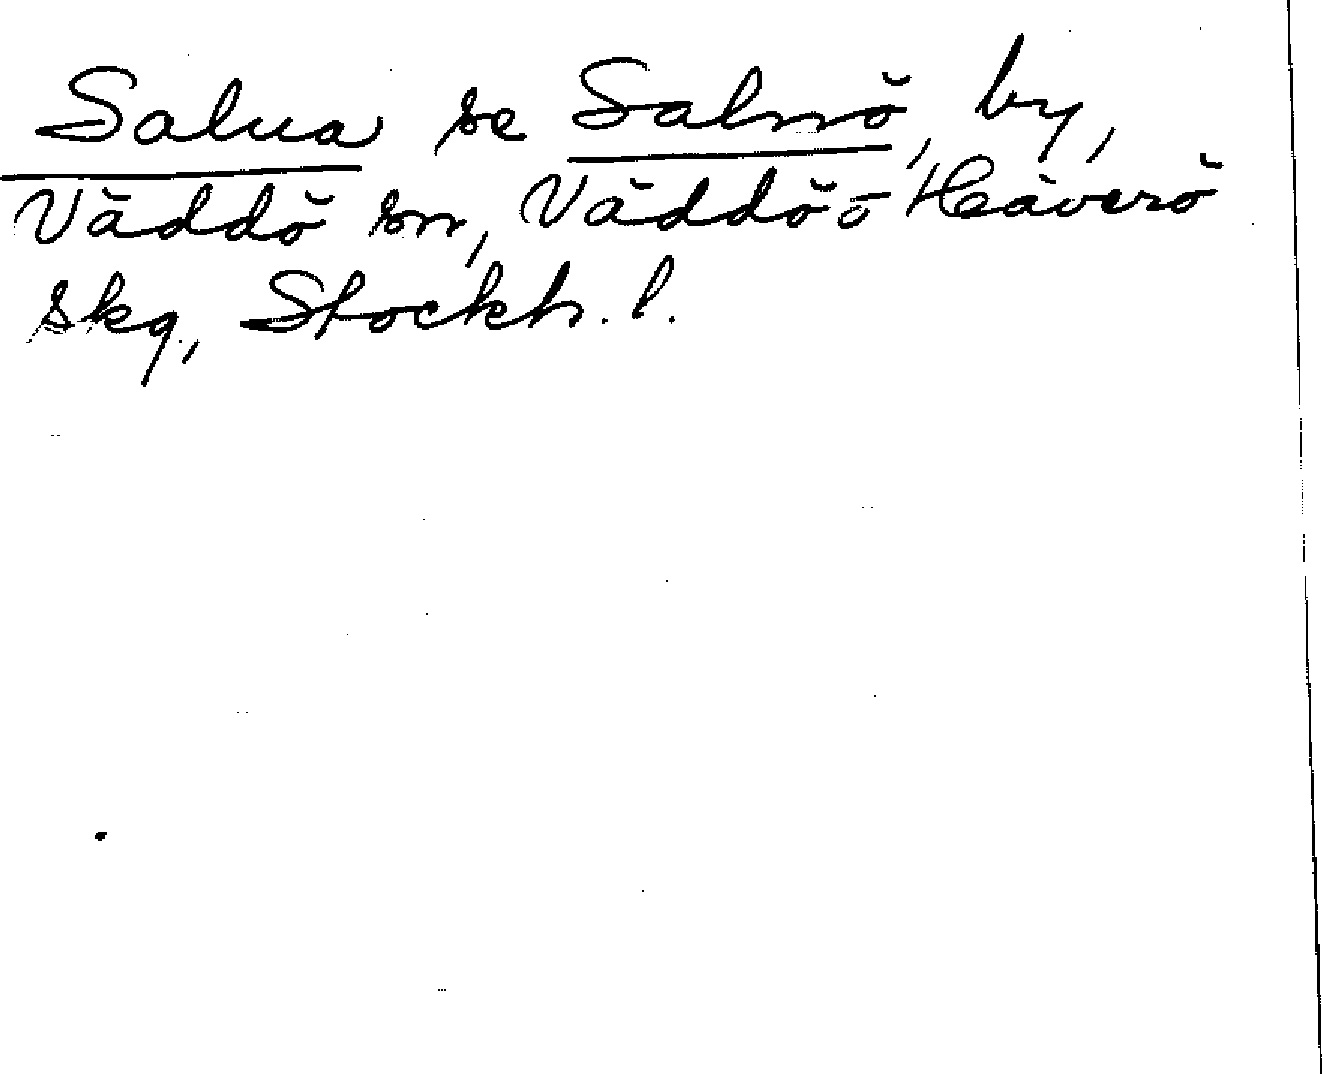 Salna se Salnö, by,
Väddö sn, Väddö o Häverö
skg, Stockh. l.